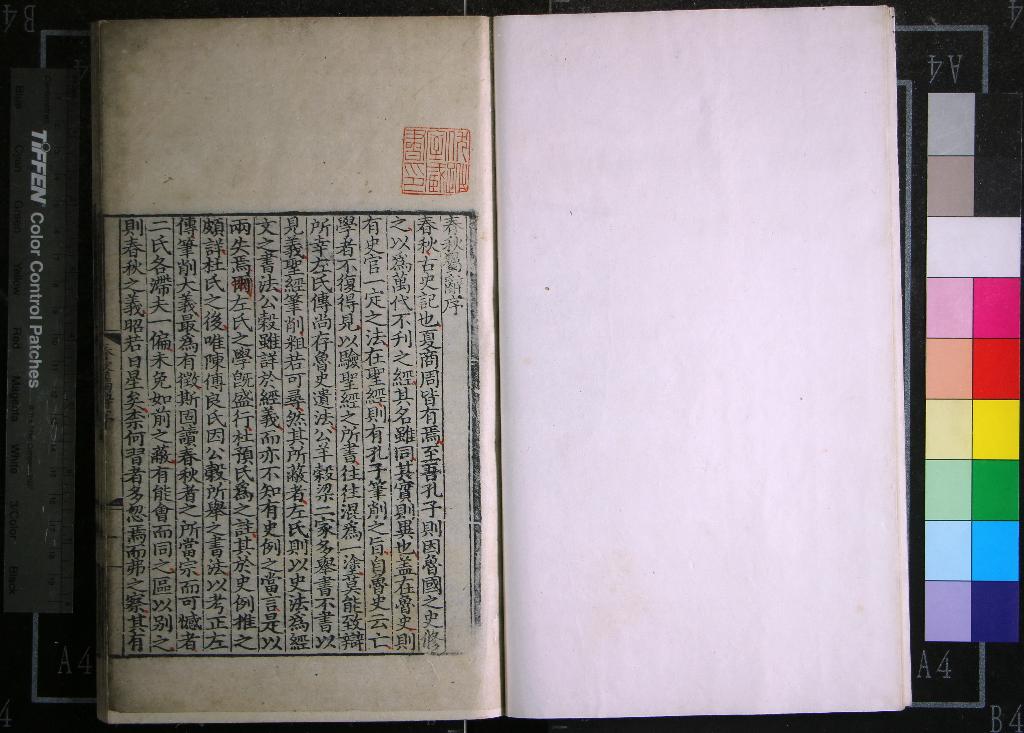 春秋屬辭序
春秋古史記也夏商周皆有焉至吾孔子則因魯國之史修
之以為萬代不刋之經其名雖同其實則異也盖在魯史則
有史官一定之法在聖經則有孔子筆削之旨自魯史云亡
學者不復得見以驗聖經之所書往往混為一塗莫能致辯
所幸左氏傳尚存魯史遺法公羊穀梁二家多舉書不書以
見義聖經筆削粗若可尋然其所蔽者左氏則以史法為經
文之書法公穀雖詳於經義而亦不知有史例之當言是以
兩失焉爾左氏之學旣盛行杜預氏為之註其於史例推之
頗詳杜氏之後唯陳傅良氏因公穀所舉之書法以考正左
傳筆削大義最為有徴斯固讀春秋者之所當宗而可憾者
二氏各滯夫一偏未免如前之蔽有能會而同之區以别之
則春秋之義昭若日星矣柰何習者多忽焉而弗之察其有
TIFFEN Color Control Patches
Blue
Cyan
Green
Yellow
Red
Magenta
White
3/Color
Black
A4
A4
A4
B4
B4